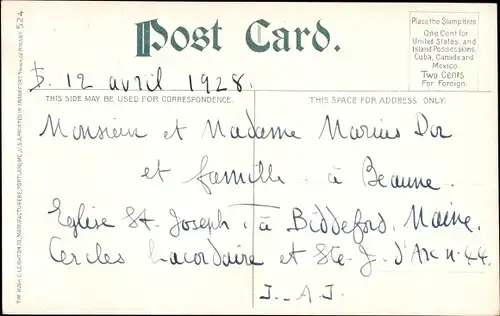 Post Card.
Place the Stamp Here
One Cent for
United States and
Island Possessions,
Cuba, Canada and
Mexico.
Two Cents
For Foreign.
D. 12 avril 1928.
THIS SIDE MAY BE USED FOR CORRESPONDENCE.
THIS SPACE FOR ADDRESS ONLY.
Monsieur et Madame Marius Dor
et famille. à Beaune.
Eglise St. Joseph. à Biddeford, Maine.
Cercles Lacordaire et Ste. J. d'Arc n. 44.
J. A. J.
THE HUGH C. LEIGHTON CO., MANUFACTURERS, PORTLAND, ME., U.S.A. PRINTED IN FRANKFORT
524